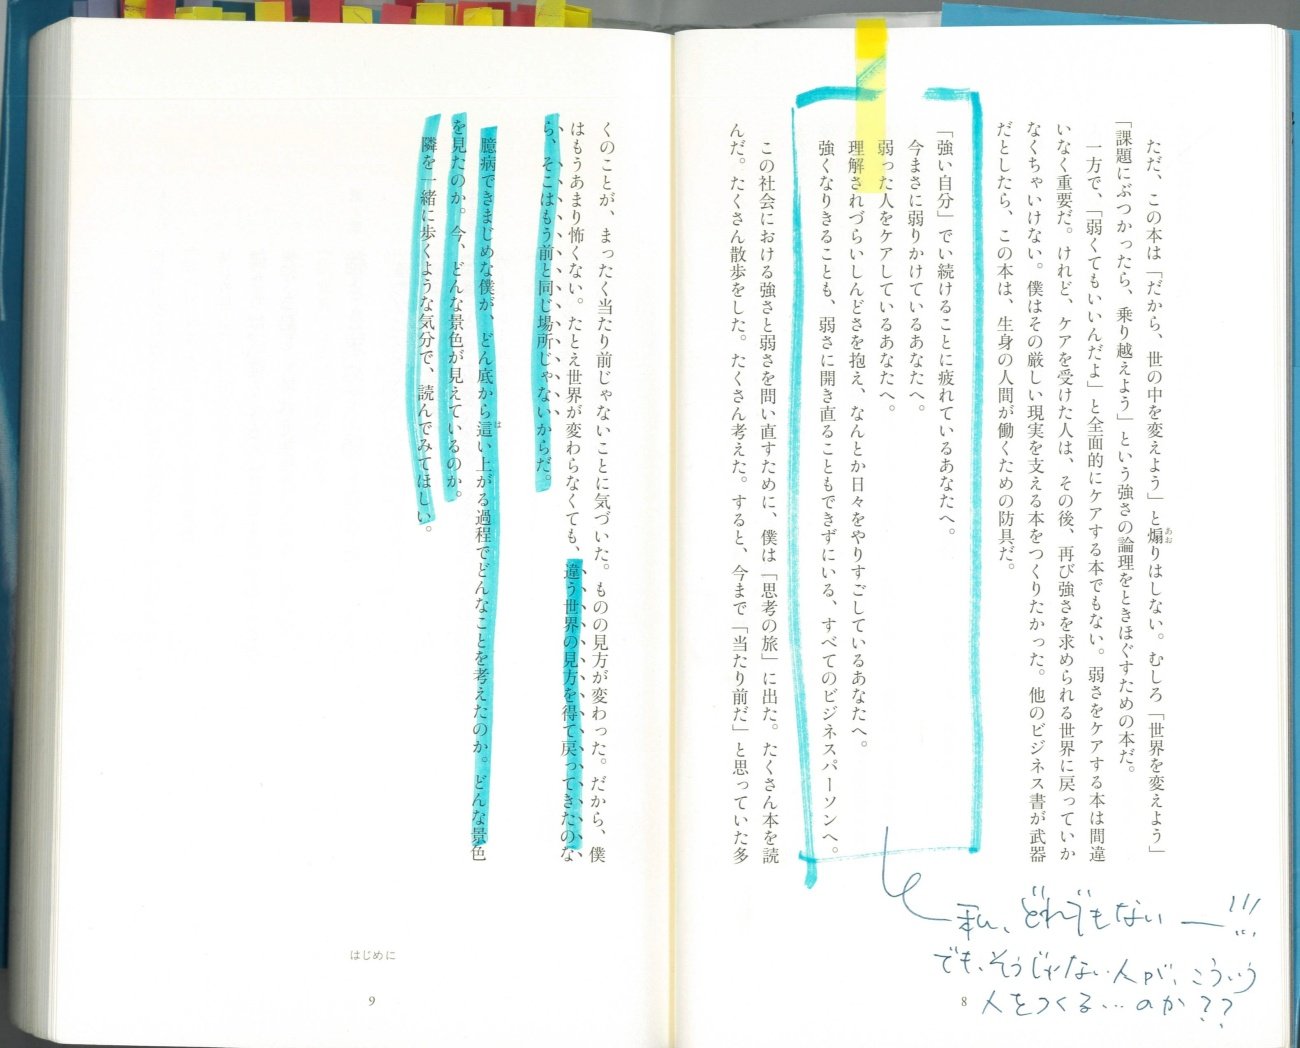 ただ、この本は「だから、世の中を変えよう」と煽りはしない。むしろ「世界を変えよう」
「課題にぶつかったら、乗り越えよう」という強さの論理をときほぐすための本だ。
一方で、「弱くてもいいんだよ」と全面的にケアする本でもない。弱さをケアする本は間違
いなく重要だ。けれど、ケアを受けた人は、その後、再び強さを求められる世界に戻っていか
なくちゃいけない。僕はその厳しい現実を支える本をつくりたかった。他のビジネス書が武器
だとしたら、この本は、生身の人間が働くための防具だ。
「強い自分」でい続けることに疲れているあなたへ。
今まさに弱りかけているあなたへ。
弱った人をケアしているあなたへ。
理解されづらいしんどさを抱え、なんとか日々をやりすごしているあなたへ。
強くなりきることも、弱さに開き直ることもできずにいる、すべてのビジネスパーソンへ。
この社会における強さと弱さを問い直すために、僕は「思考の旅」に出た。たくさん本を読
んだ。たくさん散歩をした。たくさん考えた。すると、今まで「当たり前だ」と思っていた多
私、どれでもないー!!!
でも、そうじゃない人が、こういう
人をつくる…のか??
8
くのことが、まったく当たり前じゃないことに気づいた。ものの見方が変わった。だから、僕
はもうあまり怖くない。たとえ世界が変わらなくても、違う世界の見方を得て戻ってきたのな
ら、そこはもう前と同じ場所じゃないからだ。
臆病できまじめな僕が、どん底から這い上がる過程でどんなことを考えたのか。どんな景色
を見たのか。今、どんな景色が見えているのか。
隣を一緒に歩くような気分で、読んでみてほしい。
はじめに
9